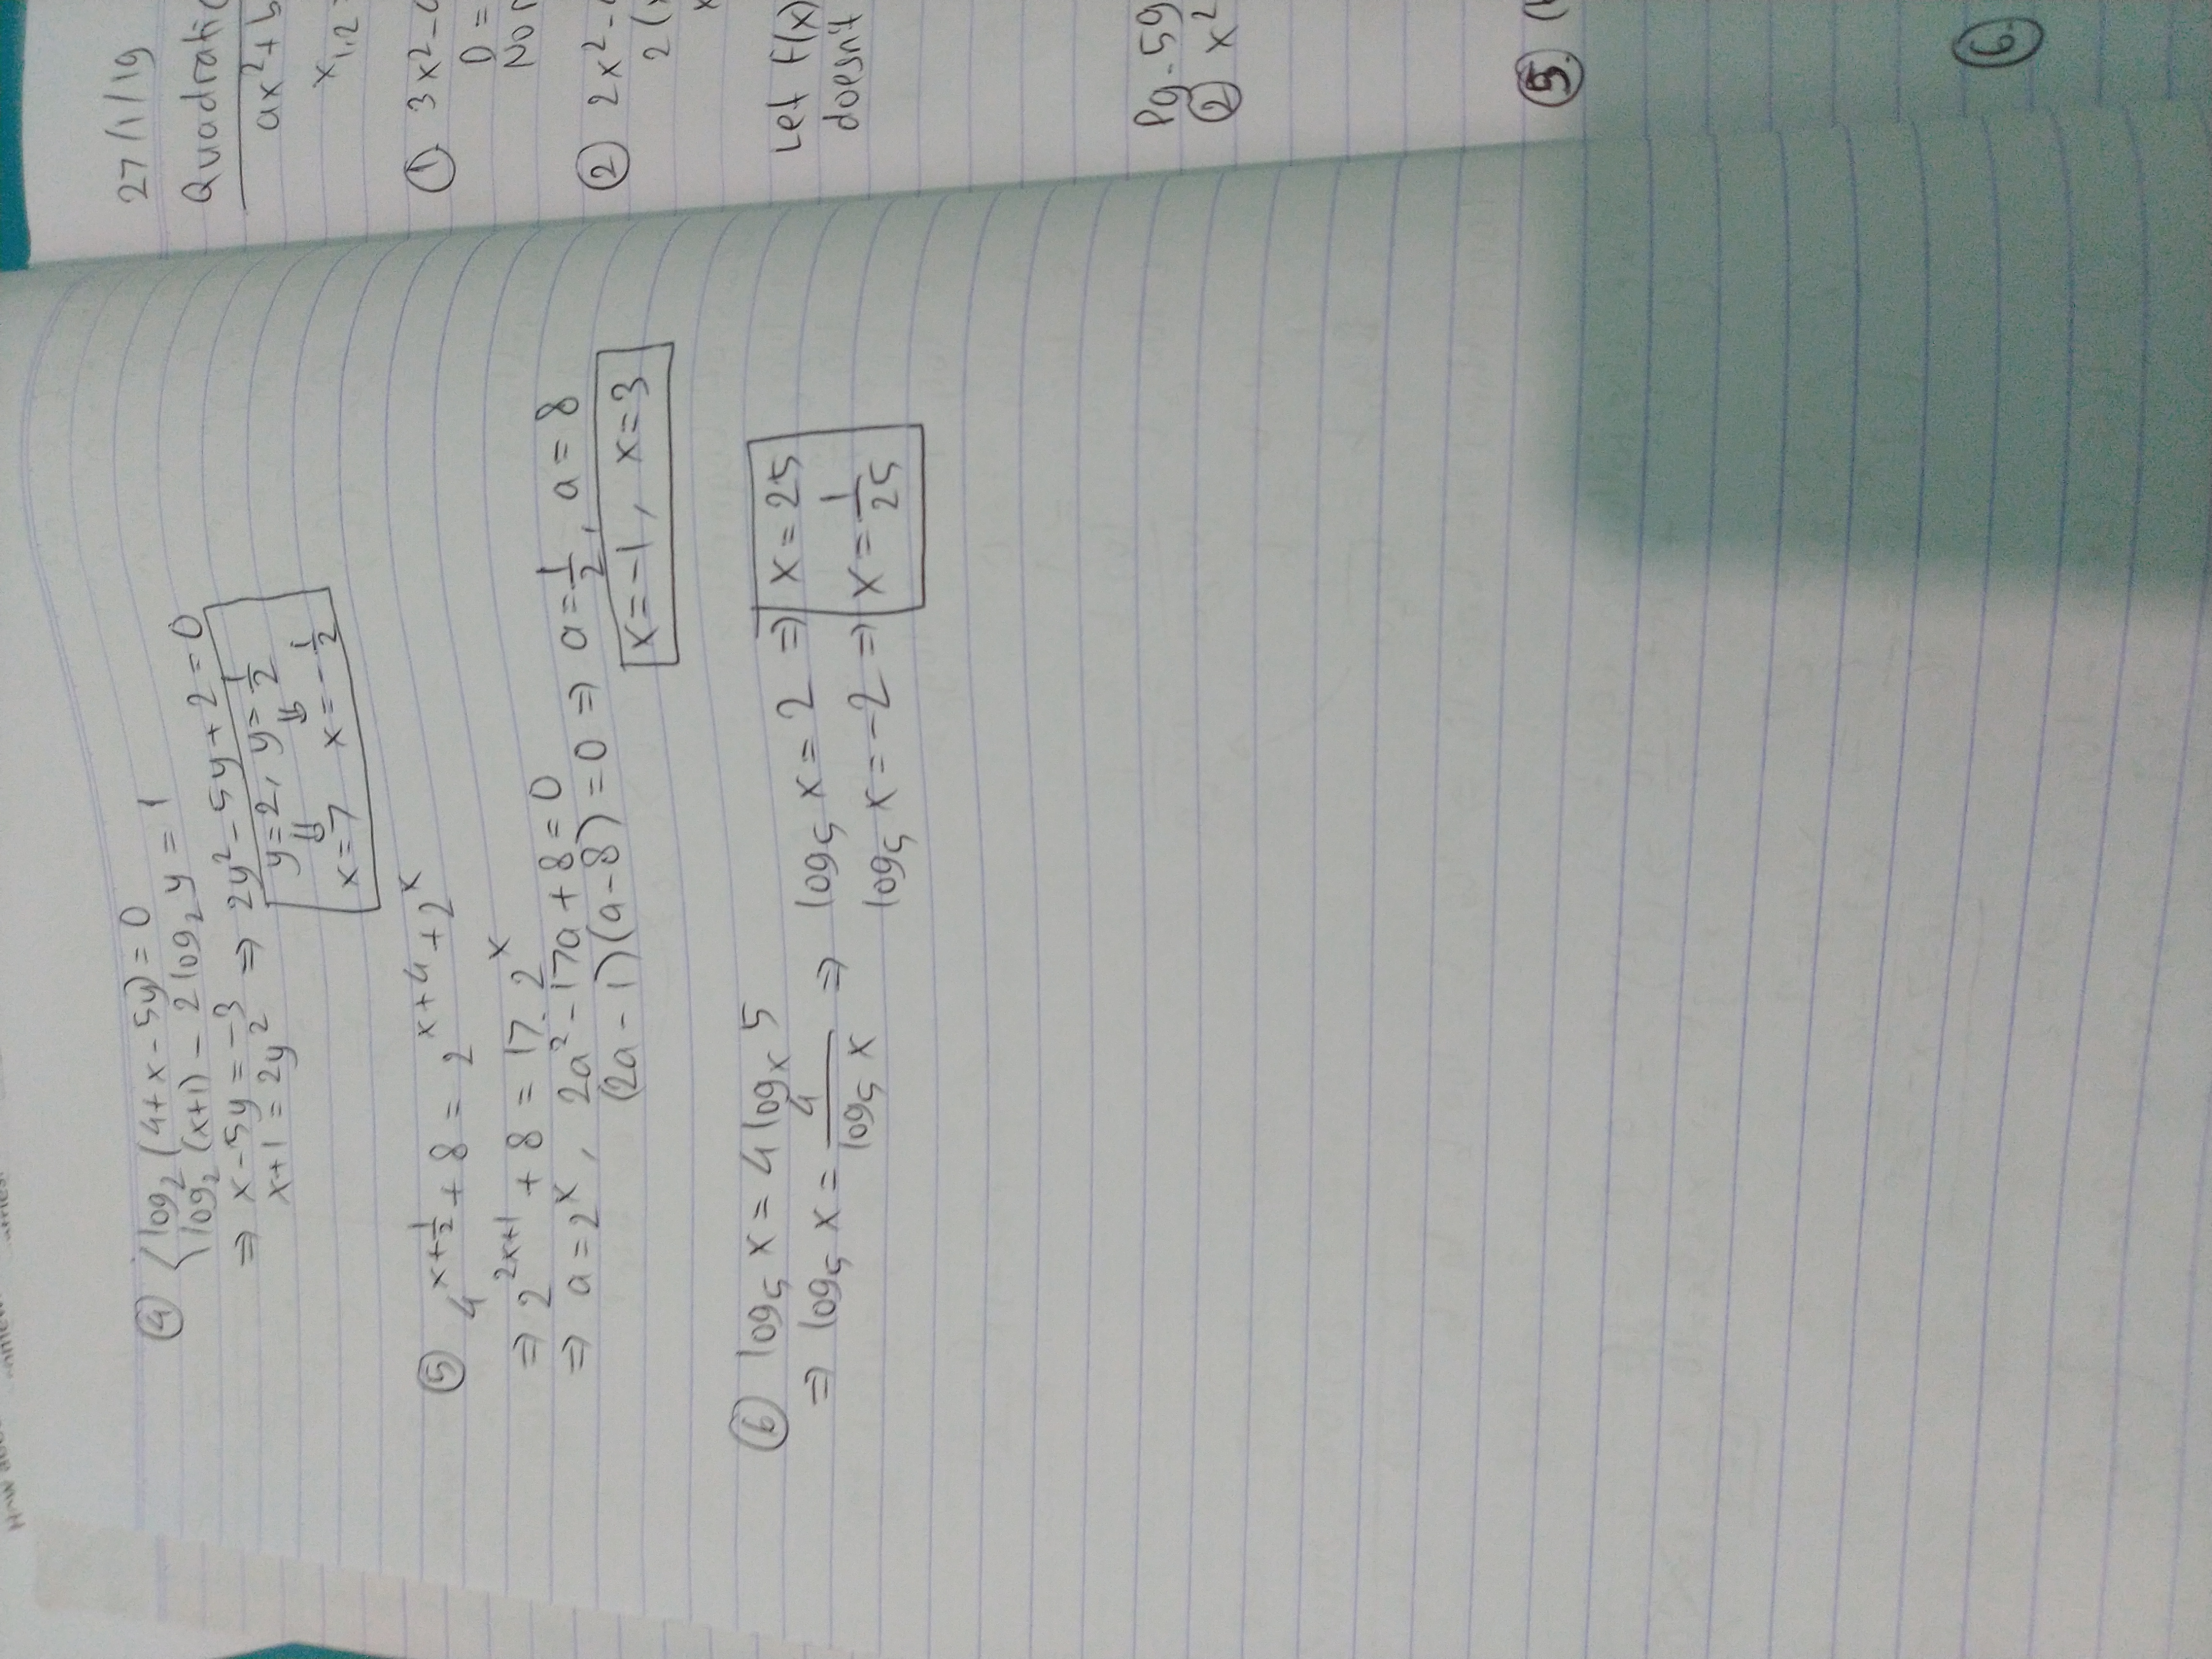 How
④ { log₂ (4+x-5y) = 0
log₂ (x+1) - 2 log₂ y = 1
⇒ x-5y = -3 ⇒ 2y² - 5y + 2 = 0
x+1 = 2y²
y=2, y=1/2
⇓ ⇓
x=7 x=-1/2
⑤ 4^(x+1/2) + 8 = 2^(x+4) + 2^x
⇒ 2^(2x+1) + 8 = 17 . 2^x
⇒ a = 2^x, 2a² - 17a + 8 = 0
(2a - 1)(a - 8) = 0 ⇒ a = 1/2, a = 8
x=-1, x=3
⑥ log₅ x = 4 logₓ 5
⇒ log₅ x = 4/(log₅ x) ⇒ log₅ x = 2 ⇒ x = 25
log₅ x = -2 ⇒ x = 1/25
27/1/19
Quadratic
ax² + b
x₁,₂
① 3x² -
D =
No
② 2x² -
2 (
x
Let f(x)
doesn't
Pg. 59
② x²
⑤. (
⑥.